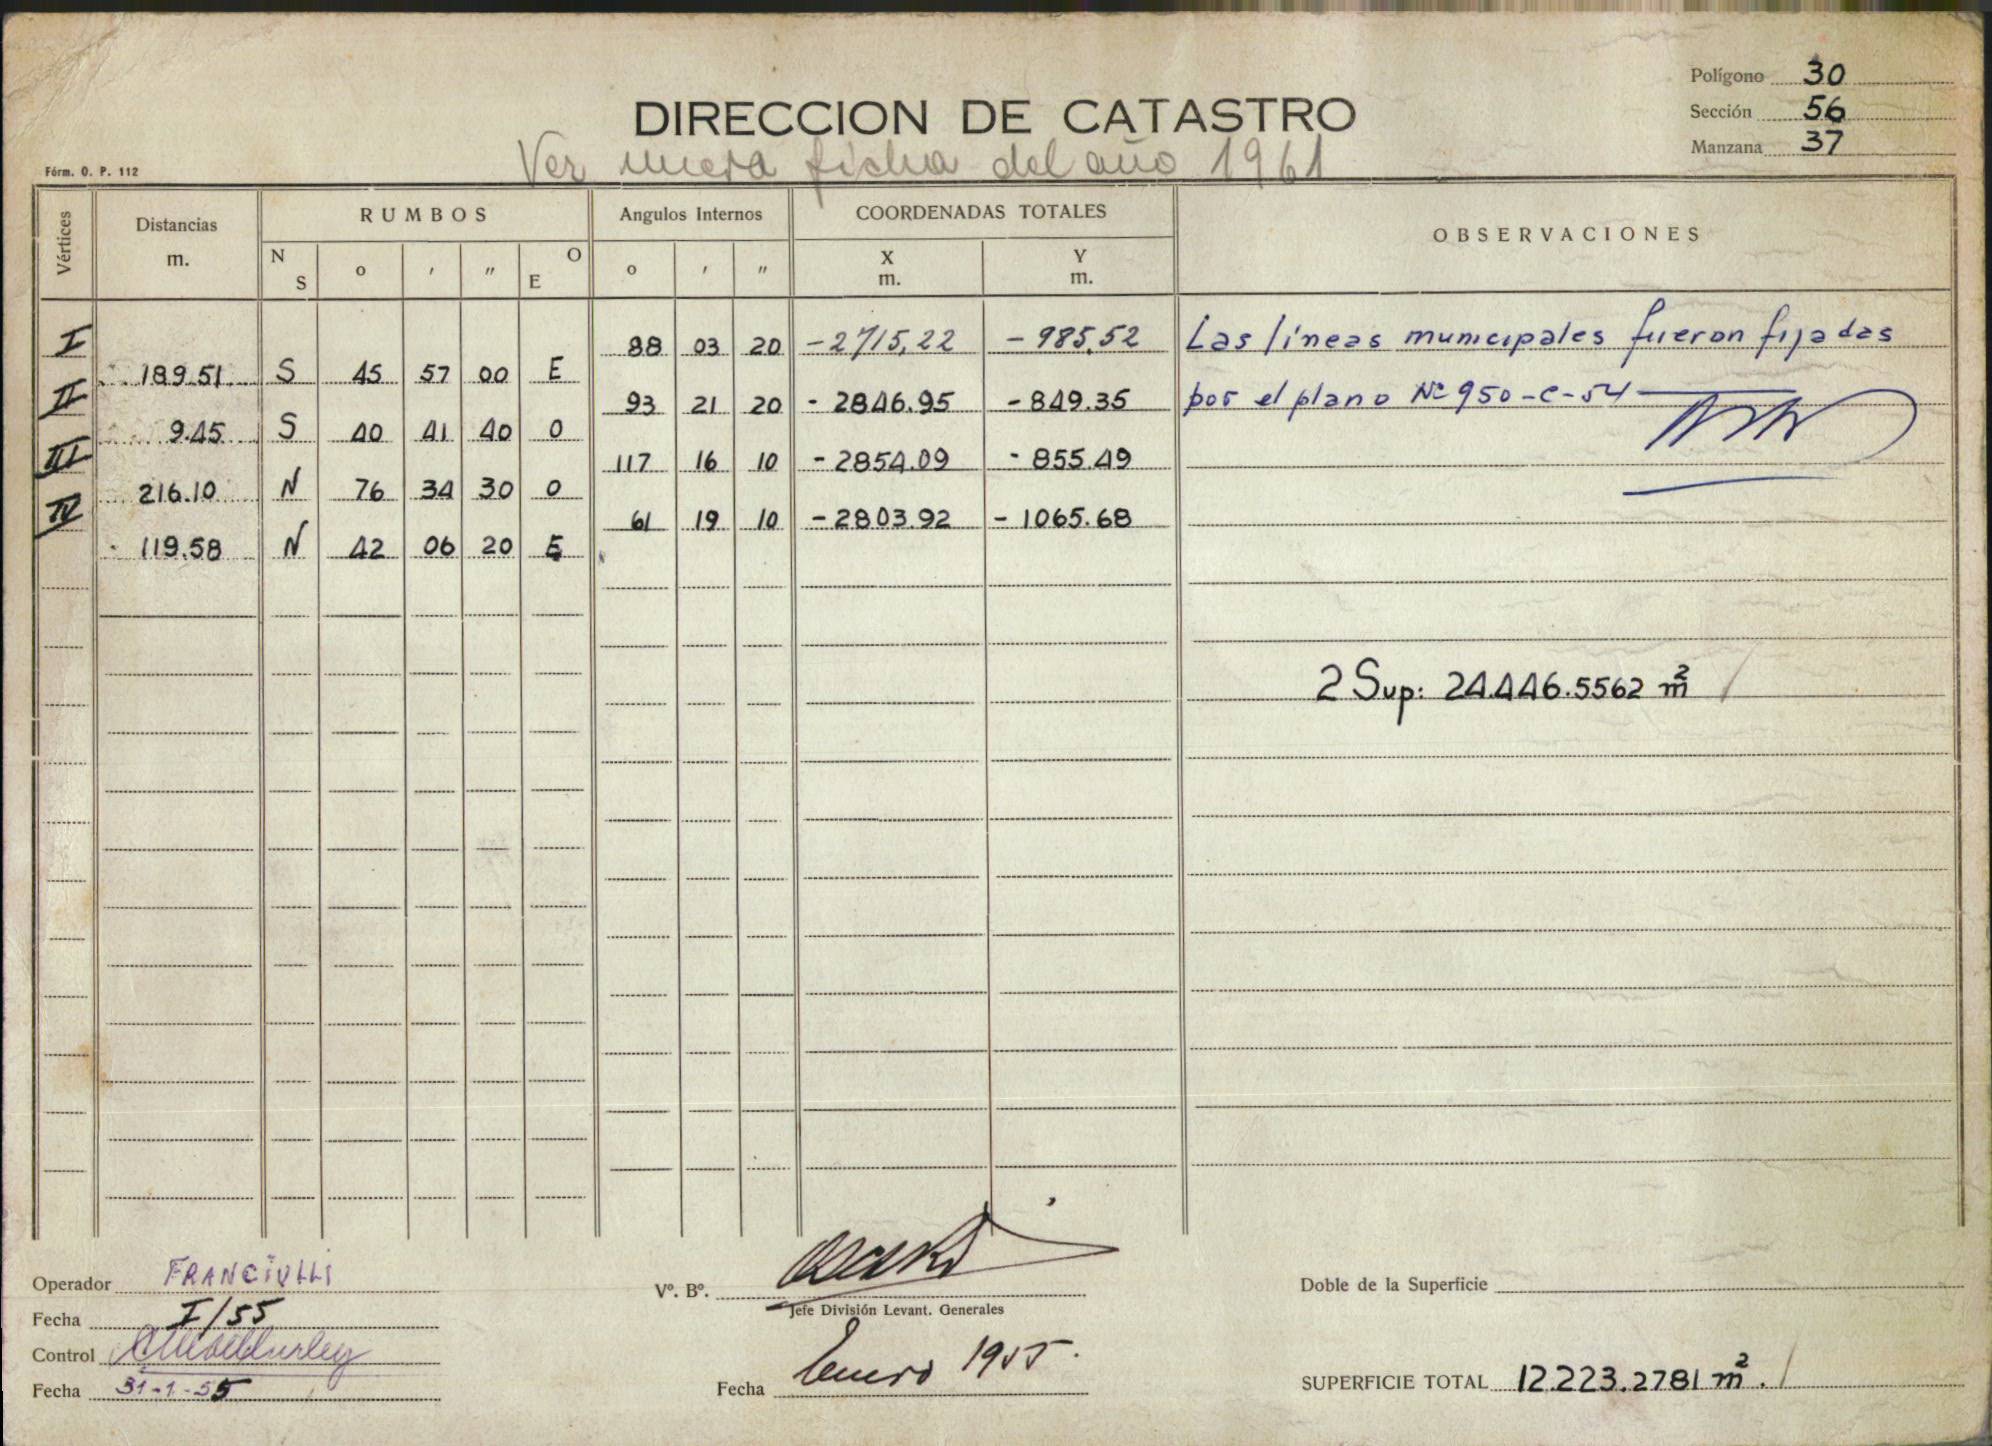 Polígono 30
DIRECCION DE CATASTRO
Sección 56
Manzana 37
Ver nueva ficha del año 1961
Fórm. O. P. 112
Vértices Distancias m. RUMBOS N S o ' " O E Angulos Internos o ' " COORDENADAS TOTALES X m. Y m. OBSERVACIONES
I 88 03 20 -2715,22 -985,52 Las líneas municipales fueron fijadas
189.51 S 45 57 00 E
II 93 21 20 -2846.95 -849.35 por el plano Nº 950-C-54
9.45 S 40 41 40 O
III 117 16 10 -2854.09 -855.49
216.10 N 76 34 30 O
IV 61 19 10 -2803.92 -1065.68
119.58 N 42 06 20 E
2 Sup: 24.446.5562 m²
Operador FRANCIULLI
Fecha I/55
Control
Fecha 31-1-55
Vº. Bº.
Jefe División Levant. Generales
Fecha Enero 1955.
Doble de la Superficie
SUPERFICIE TOTAL 12.223.2781 m².